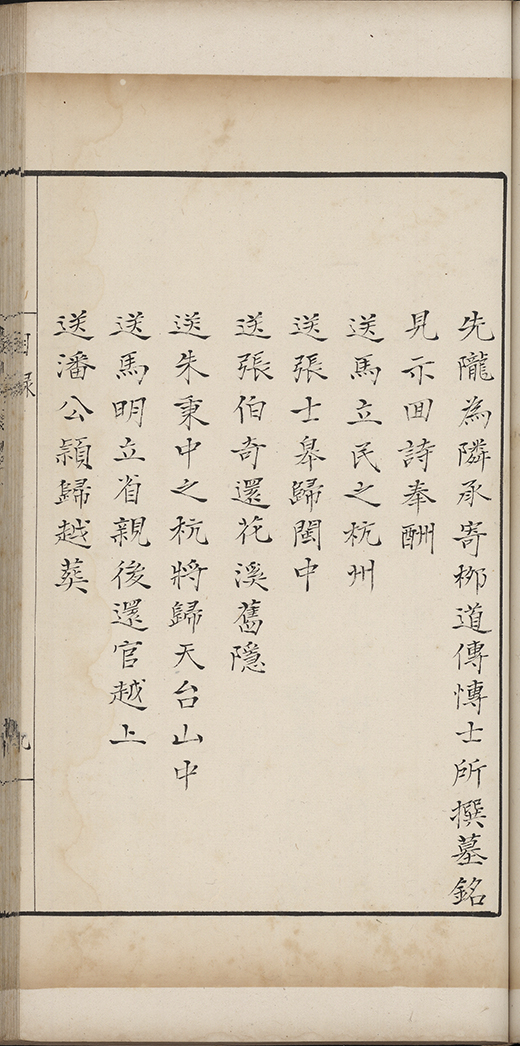 先隴為隣承寄栁道傳愽士所撰墓銘
見示回詩奉酬
送馬立民之杭州
送張士皋歸閩中
送張伯奇還花溪舊隱
送朱秉中之杭將歸天台山中
送馬明立省親後還官越上
送潘公顈歸越葬
目録
九